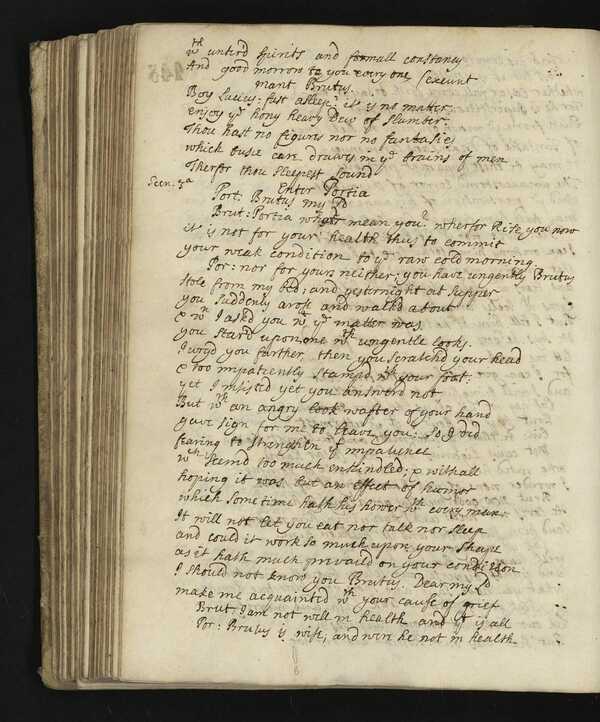 wth untird spirits and formall constancy
And good morrow to you every one [exeunt
mant Brutus.
Boy Lucius: fast asleep: it is no matter,
enjoy ye hony heavy Dew of slumber.
Thou hast no figures nor no fantasies
which busie care drawes in ye brains of men
Therfor thou sleepest sound
Enter Portia
Scen. 3a
Port. Brutus my Ld
Brut: Portia what mean you? wherfor Rise you now
it is not for your health thus to commit
your weak condition to ye raw cold morning.
Por: nor for yours neither; you have ungently Brutus
stole from my bed; and yesternight at supper
you suddenly arose and walkd about
& wn I askd you wt ye matter was
you stard upon one wth ungentle looks.
I urgd you further, then you scratchd your head
& too impatiently stampd wth your foot:
yet I insisted yet you answerd not
But wth an angry wafter of your hand
gave sign for me to leave you: so I did
fearing to strengthen yt impatience
wch seemd too much enkindled; & withall
hoping it was but an effect of humor
which sometime hath his hower wth every man.
It will not let you eat nor talk nor sleep
and could it work so much upon your shape
as it hath much prevaild on your condition
I should not know you Brutus. Dear my Ld
make me acquainted wth your cause of grief
Brut: I am not well in health and yt is all
Por: Brutus is wise, and were he not in health